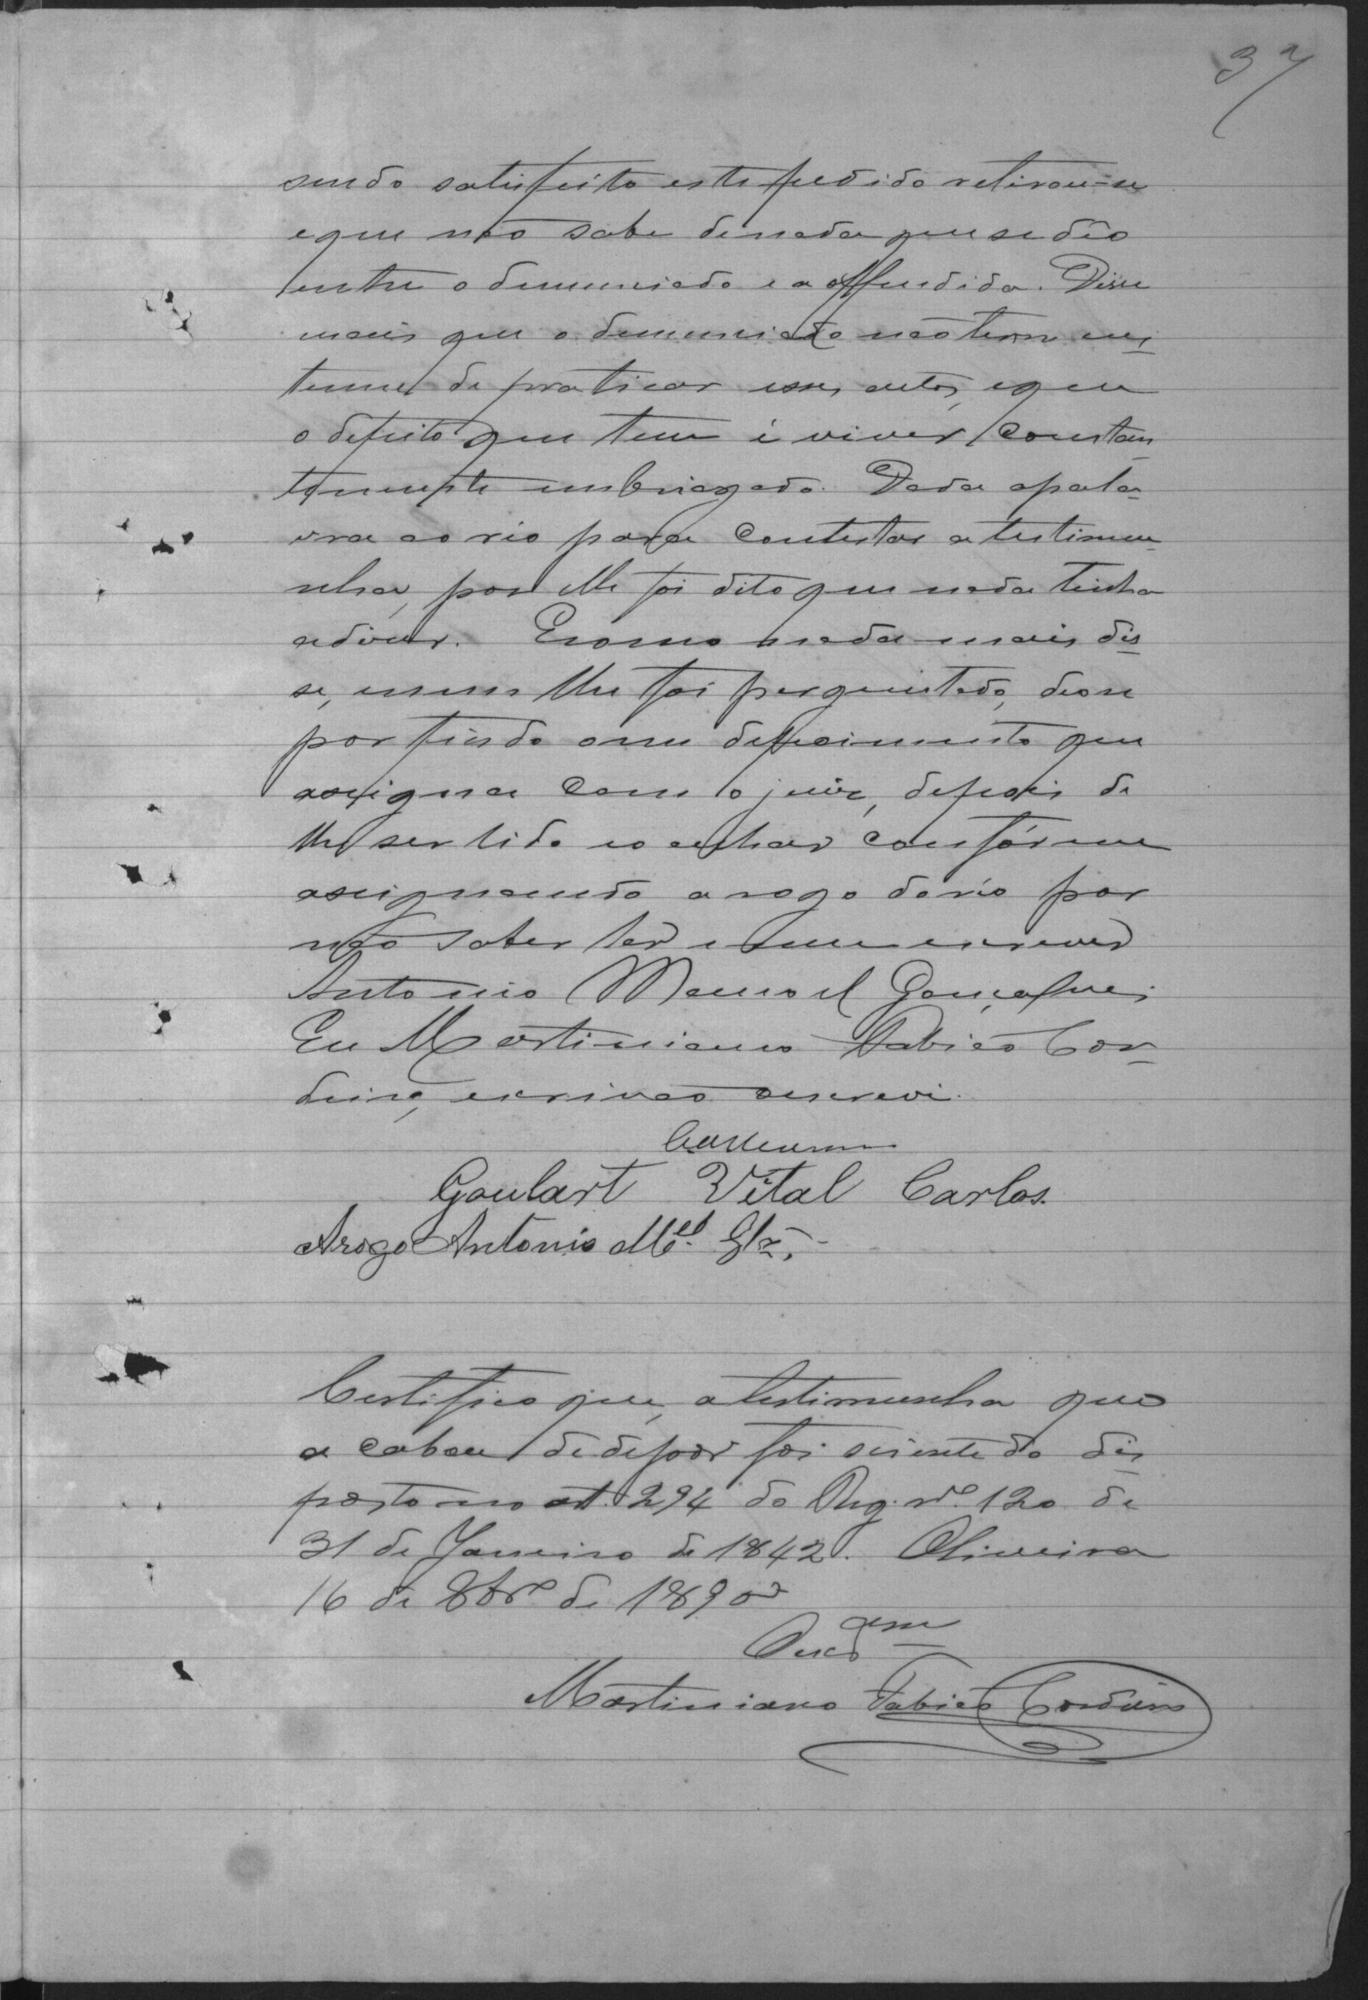 37
sendo satisfeito este pedido retirou-se
e que não sabe de nada que se dêo
entre o denunciado e a offendida. Disse
mais que o denunciado não tem cus
tume de praticar esses actos, e que
o defeito que tem é viver constan
temente embriagado. Dada a pala-
vra ao réo para contestar a testimu-
nha, por elle foi dito que nada tinha
a dizer. E como nada mais dis
se, e nem lhe foi perguntado, deo se
por findo o seu depoimento que
assigna com o juiz, depois de
lhe ser lido e o achar confórme
assignando a rogo do réo por
não saber ler e nem escrever
Antonio Manoel Gonçalves
Eu Martiniano Fabião Cor-
deiro, escrivão o escrevi.
Goulart Vital Carlos.
Arogo Antonio Mel. Glz.
Certifico que, a testimunha que
a cabou de depor foi sciente do dis
posto no art. 294 do Reg. nº 120 de
31 de Janeiro de 1842. Oliveira
16 de 8brº de 1890
Martiniano Fabião Cordeiro